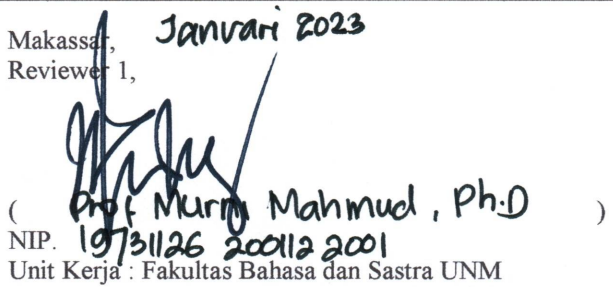 Makassar, Janvari 2023
Reviewer 1,
( Prof Murni Mahmud, Ph.D )
NIP. 19731126 200112 2001
Unit Kerja : Fakultas Bahasa dan Sastra UNM